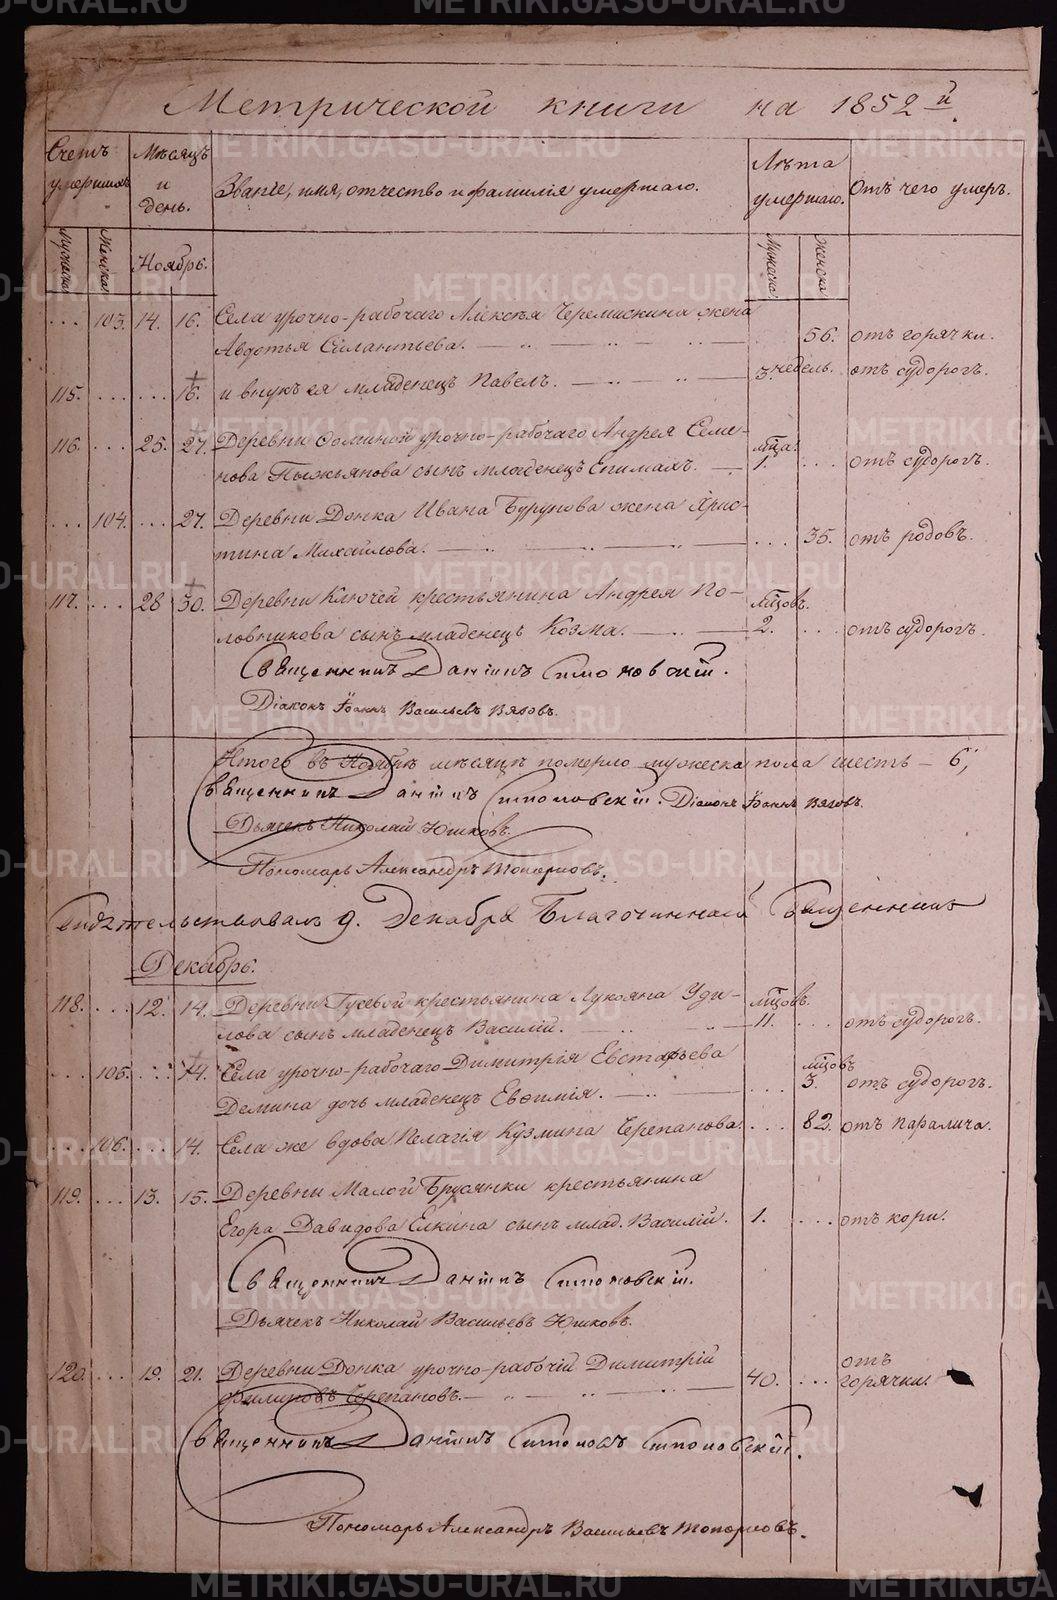 Метрической книги на 1852й.
Счетъ умершихъ
Мѣсяцъ и день.
Званіе, имя, отчество и фамилія умершаго.
Лѣта умершаго.
Отъ чего умеръ.
Мужеска
Женска
Ноябрь.
Мужеска
Женска
... 103. 14. 16. Села урочно-рабочаго Алексѣя Черемискина жена
Авдотья Силантьева. 56. отъ горячки.
115. ... ... 16. и внукъ ея младенецъ Павелъ. 3. недѣль. отъ судорогъ.
116. ... 25. 27. Деревни Ѳоминой урочно-рабочаго Андрея Семе- мѣца.
нова Пыжьянова сынъ младенецъ Епимахъ. 1. ... отъ судорогъ.
... 104. ... 27. Деревни Донка Ивана Бурунова жена Хрис-
тина Михайлова. ... 35. отъ родовъ.
117. ... 28 30. Деревни Ключей крестьянина Андрея По- мѣцовъ.
ловникова сынъ младенецъ Козма. 2. ... отъ судорогъ.
Священникъ Даніилъ Симоновскій.
Діаконъ Іоаннъ Васильевъ Вязовъ.
Итого въ Ноябрѣ мѣсяцѣ померло мужеска пола шесть – 6,
Священникъ Даніилъ Симоновскій. Діаконъ Іоаннъ Вязовъ.
Дьячекъ Николай Юшковъ.
Пономарь Александръ Топорковъ.
Свидѣтельствовалъ 9. Декабря Благочинный Священникъ
Декабрь.
118. ... 12. 14. Деревни Гусевой крестьянина Лукояна Уди- мѣцовъ.
лова сынъ младенецъ Василій. 11. ... отъ судорогъ.
... 105. ... 14. Села урочно-рабочаго Димитрія Евстафьева мѣцовъ
Демина дочь младенецъ Евѳимія. ... 3. отъ судорогъ.
... 106. ... 14. Села же вдова Пелагія Кузмина Черепанова. ... 82. отъ паралича.
119. ... 13. 15. Деревни Малой Брусянки крестьянина
Егора Давидова Елкина сынъ млад. Василій. 1. ... отъ кори.
Священникъ Даніилъ Симоновскій.
Дьячекъ Николай Васильевъ Юшковъ.
120. ... 19. 21. Деревни Донка урочно-рабочій Димитрій отъ
Филиповъ Черепановъ. 40. ... горячки.
Священникъ Даніилъ Симоновскій.
Пономарь Александръ Васильевъ Топорковъ.
METRIKI.GASO-URAL.RU